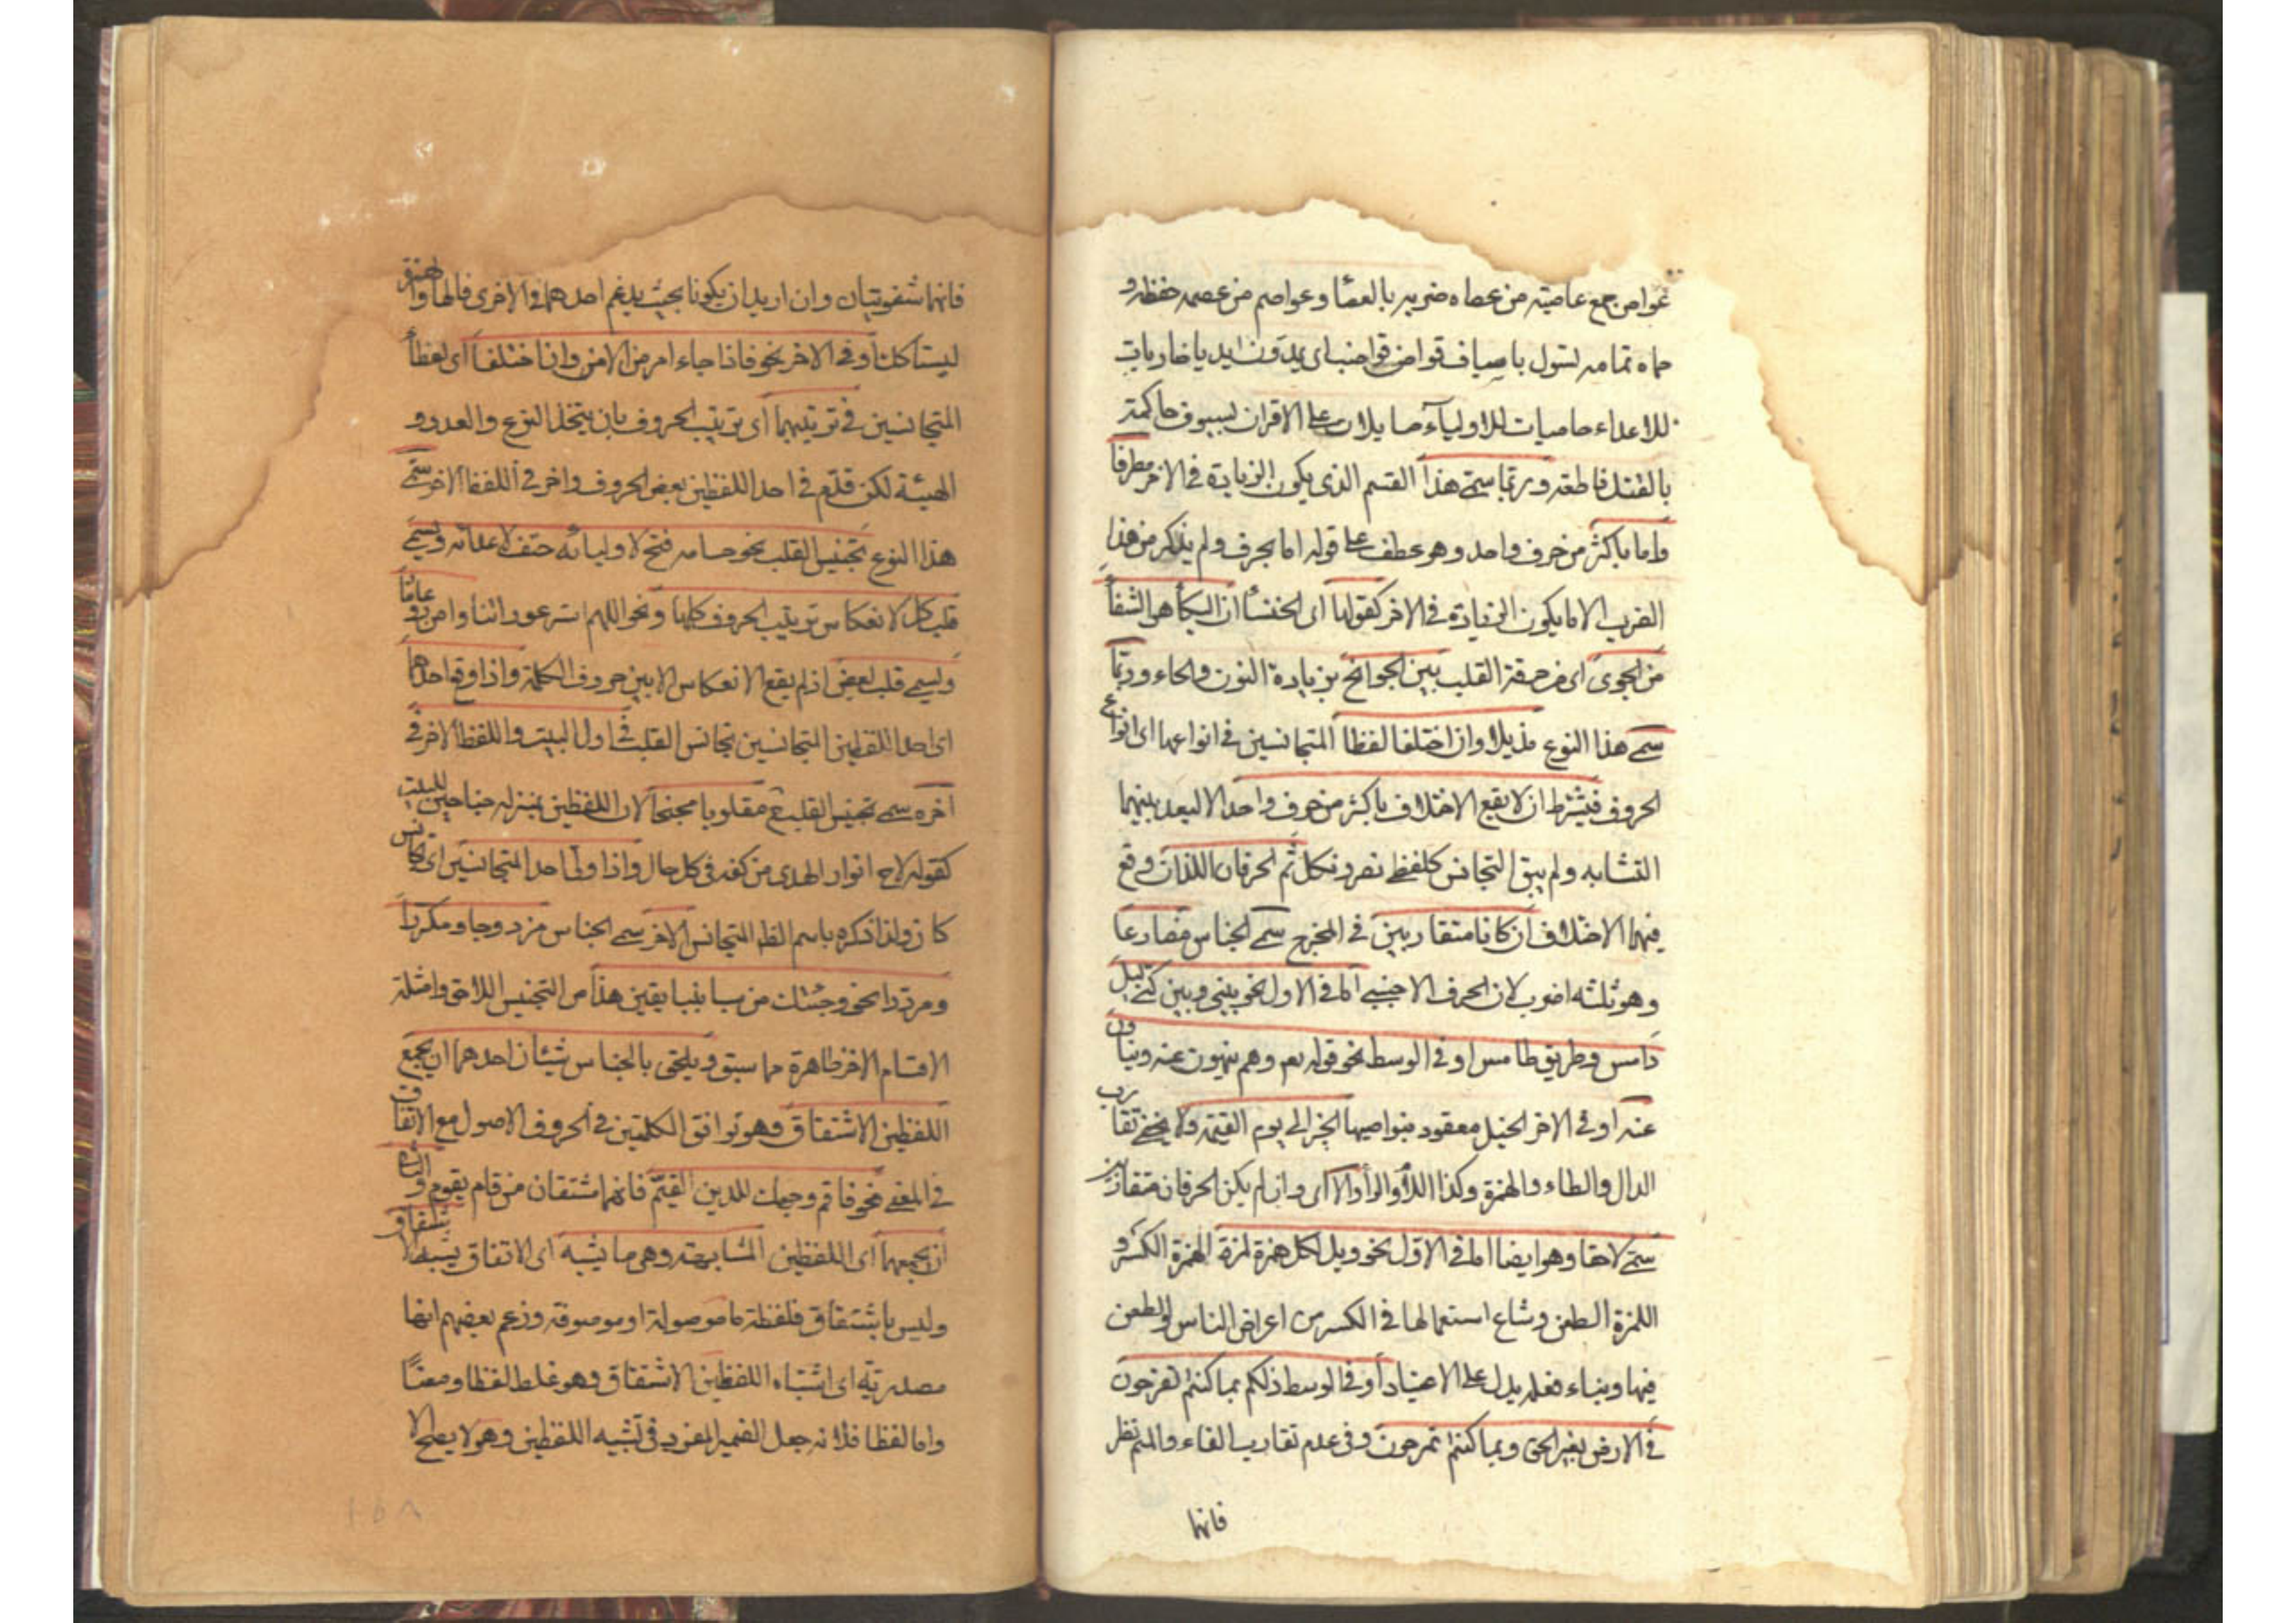 عواص جمع عاصية من عصاه ضربه بالعصا وعواصم من عصمه حفظه و
حماه تمامه تسول باسياف قواض قواضب اى يمدون ايديا ضاربات
للاعداء حاميات للاولياء صايلات على الاقران بسيوف حاكمة
بالقتل قاطعة وربما سمى هذا القسم الذى يكون الزيادة فى الاخر مطرفا
واما باكثر من حرف واحد وهو عطف على قوله اما بحرف ولم يذكر من هذا
الضرب الا ما يكون الزيادة فى الاخر كقولها اى الخنسا ان البكا هو الشفا
من الجوى اى حرقة القلب بين الجوانح بزيادة النون والحاء وربما
سمى هذا النوع مذيلا وان اختلفا لفظا المتجانسين فى انواعها اى انواع
الحروف فيشترط ان لا يقع الاختلاف باكثر من حرف واحد الا لبعد بينهما
التشابه ولم يبق التجانس كلفظى نصر ونكل ثم الحرفان اللذان وقع
فيهما الاختلاف ان كانا متقاربين فى المخرج سمى الجناس مضارعا
وهو ثلثة اضرب لان الحرف الاجنبى اما فى الاول نحو بينى وبين كنى ليل
دامس وطريق طامس او فى الوسط نحو قوله تعم وهم ينهون عنه وينأون
عنه او فى الاخر الخيل معقود بنواصيها الخير الى يوم القيمة ولا يخفى تقارب
الدال والطاء والهمزة وكذا اللام والراء والا اى وان لم يكن الحرفان متقاربين
سمى لاحقا وهو ايضا اما فى الاول نحو ويل لكل همزة لمزة الهمزة الكسر و
اللمزة الطعن وشاع استعمالها فى الكسر من اعراض الناس والطعن
فيها وبناء فعلة يدل على الاعتياد او فى الوسط ذلكم بما كنتم تفرحون
فى الارض بغير الحق وبما كنتم تمرحون وفى عدم تقارب الفاء والميم نظر
فانهما
فانهما شفويتان وان اريد ان يكونا بحيث يدغم احدهما فى الاخرى فالهاء والهمزة
ليستا كذلك او فى الاخر نحو فاذا جاء امر من الامن وان اختلفا اى لفظا
المتجانسين فى ترتيبهما اى ترتيب الحروف بان يتحد النوع والعدد و
الهيئة لكن قدم فى احد اللفظين بعض الحروف واخر فى اللفظ الاخر سمى
هذا النوع تجنيس القلب نحو حسامه فتح لاوليائه حتف لاعدائه ويسمى
قلب كل لانعكاس ترتيب الحروف كلها ونحو اللهم استر عوراتنا وامن روعاتنا
ويسمى قلب بعض اذ لم يقع الانعكاس الا بين حروف الكلمة واذا وقع احدهما
اى احد اللفظين المتجانسين تجانس القلب فى اول البيت واللفظ الاخر فى
اخره سمى تجنيس القلب ح مقلوبا مجنحا لان اللفظين بمنزلة جناحين للبيت
كقوله لاح انوار الهدى من كفه فى كل حال واذا ولى احد المتجانسين اى تجانس
كان ولذا ذكره باسم الظاهر المتجانس الاخر سمى الجناس مزدوجا ومكررا
ومرددا نحو وجئتك من سبا بنبا يقين هذا من التجنيس اللاحق وامثلة
الاقسام الاخر ظاهرة مما سبق ويلحق بالجناس شيئان احدهما ان يجمع
اللفظين الاشتقاق وهو توافق الكلمتين فى الحروف الاصول مع الاتفاق
فى المعنى نحو فاقم وجهك للدين القيم فانهما مشتقان من قام يقوم والثانى
ان يجمعهما اى اللفظين المشابهة وهى ما يشبه اى الاتفاق يشبه الاشتقاق و
وليس باشتقاق فلفظة ما موصولة او موصوفة وزعم بعضهم انها
مصدرية اى اشتباه اللفظين الاشتقاق وهو غلط لفظا ومعنا
واما لفظا فلانه جعل الضمير المفرد فى تشبيه اللفظين وهو لا يصلح الا
١٥٨